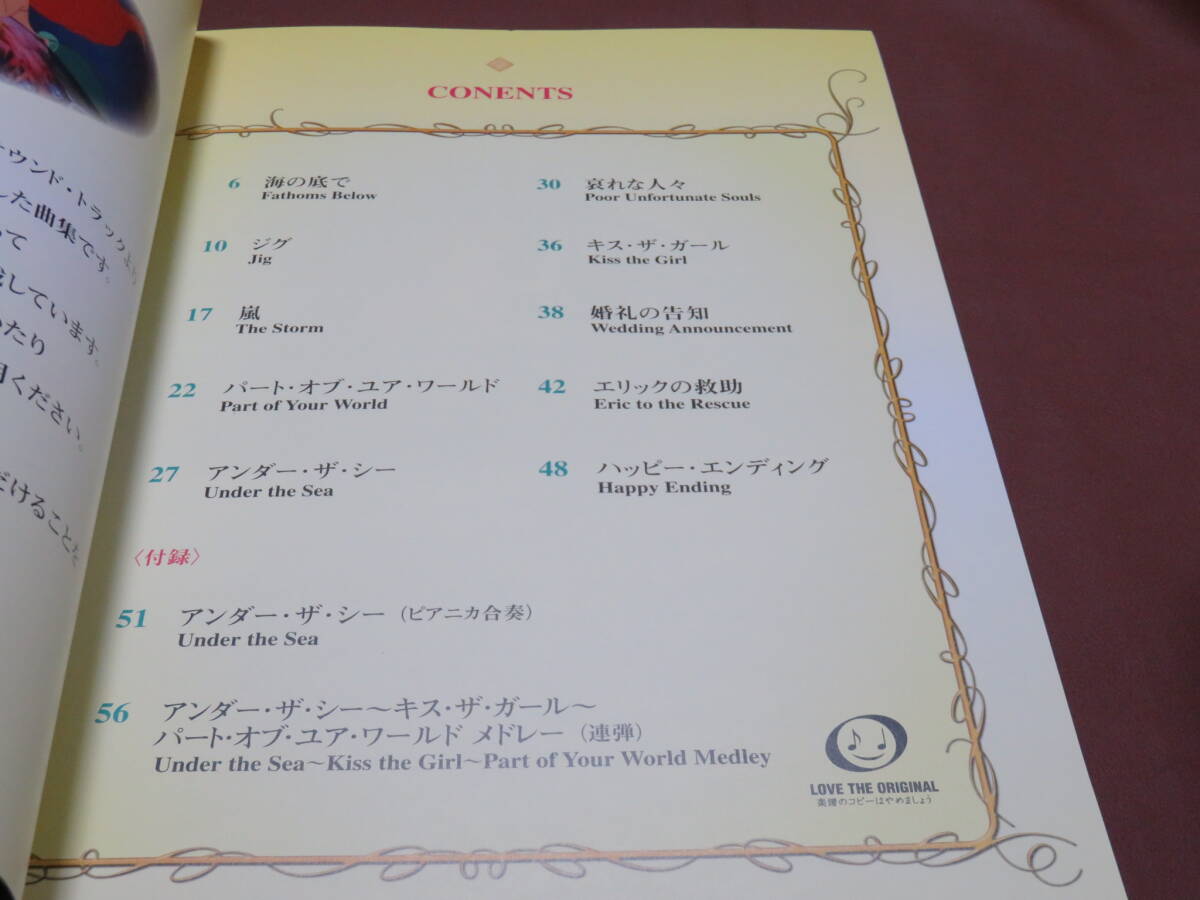 ウンド・トラックより
した曲集です。
って
成しています。
たり
用ください。
だけることを
CONENTS
6 海の底で
Fathoms Below
10 ジグ
Jig
17 嵐
The Storm
22 パート・オブ・ユア・ワールド
Part of Your World
27 アンダー・ザ・シー
Under the Sea
30 哀れな人々
Poor Unfortunate Souls
36 キス・ザ・ガール
Kiss the Girl
38 婚礼の告知
Wedding Announcement
42 エリックの救助
Eric to the Rescue
48 ハッピー・エンディング
Happy Ending
〈付録〉
51 アンダー・ザ・シー（ピアニカ合奏）
Under the Sea
56 アンダー・ザ・シー～キス・ザ・ガール～
パート・オブ・ユア・ワールド メドレー（連弾）
Under the Sea~Kiss the Girl~Part of Your World Medley
LOVE THE ORIGINAL
楽譜のコピーはやめましょう